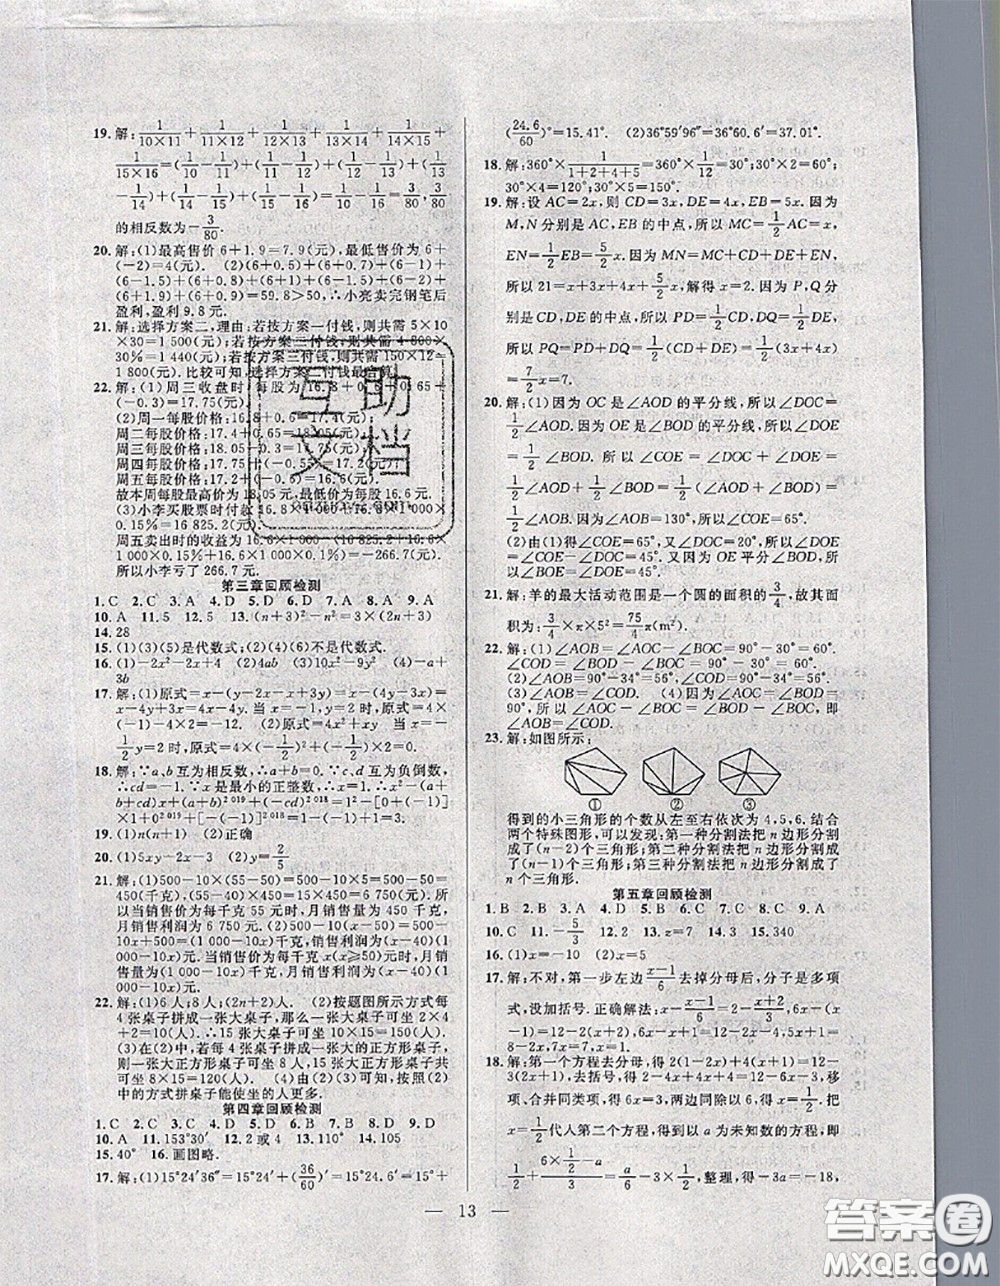 19. 解: 1/(10×11) + 1/(11×12) + 1/(12×13) + 1/(13×14) + 1/(14×15) +
1/(15×16) = (1/10 − 1/11) + (1/11 − 1/12) + (1/12 − 1/13) + (1/13
− 1/14) + (1/14 − 1/15) + (1/15 − 1/16) = 1/10 − 1/16 = 3/80, 3/80
的相反数为 −3/80.
20. 解:(1)最高售价 6+1.9=7.9(元),最低售价为 6+
(−2)=4(元). (2)(6+0.9)×
盈利,盈利 9.8 元.
21. 解:选择方案二,理由:若按方案一付钱,则共需 5×10
×30=1 500(元);若按方案二付钱,则共需
30%=1 440(元);若按方案三付钱,则共需 150×12=
1 800(元).比较可知,选择方案二付钱最合算.
22. 解:(1)周三收盘时,每股为 16.8+0.6+0.65
+(−0.3)
(2)周一每股价格:16.8+0.6=17.4(元)
周二每股价格:17.4+0.65=18.05(元)
周三每股价格:18.05
周四每股价格:17.75
周五每股价格:17.2
故本周每股最高价为 18.05 元,最低价为每股 16.6 元.
(3)小李买股票时付款 16.8×1 000×
0.15%)=16 825.2(元)
周五卖出时的收益为 16.6×1 000−(16 825.2+16.6×
1 000×0.15%+16.6×1 000×0.1%)=−266.7(元)
所以小李亏了 266.7 元.
第三章回顾检测
1.C 2.C 3.A 4.D 5.D 6.D 7.A 8.A 9.A
10.A 11.5 12.5 13.(n+3)²−n²=3(2n+3)
14.28
15.(1)(3)(5)是代数式;(2)(4)(6)不是代数式.
16.(1)−2x²−2x−4 (2)4ab (3)10x²−9y² (4)−a+
3b
17. 解:(1)原式=x−(y−2x−x+3y)=x−(4y−3x)=
x−4y+3x=4x−4y. 当 x=−1,y=2 时,原式=4
×(−1)−4×2=−12 (2)原式=4x²+xy 当 x=
−1/2 y=2 时,原式=4×(−1/2)²+(−1/2)×2=0.
18. 解:∵a,b 互为相反数,∴a+b=0;∵c,d 互为负倒数,
∴cd=−1;∵x 是最小的正整数,∴x=1. x²−(a+
b+cd)x+(a+b)²⁰¹⁹+(−cd)²⁰¹⁸=1²−[0+(−1)]
×1+0²⁰¹⁹+[−(−1)]²⁰¹⁸=1−(−1)+0+1=3.
19.(1)n(n+1) (2)正确
20.(1)5xy−2x−3 (2)y=2/5
21. 解:(1)500−10×(55−50)=500−10×5=500−50=
450(千克),(55−40)×450=15×450=6 750(元).
所以当销售价为每千克 55 元时,月销售量为 450 千
克,月销售利润为 6 750 元. (2)500−10(x−50)=
500−10x+500=(1 000−10x)千克,(x−40)(1
000−10x)元. 所以月销售利润为(x−40)(1
000−10x)元,销售价为每千克 x(x≥50)元时,月销售
量为(1 000−10x)千克,月销售利润为(x−40)(1
000−10x)元.
22. 解:(1)6 人;8 人;(2n+2)人. (2)按题图所示方式每
4 张桌子拼成一张大桌子,那么一张大桌子可坐 2×4
+2=10(人).所以 15 张大桌子可坐 10×15=150(人).
(3)在(2)中,若每 4 张桌子拼成一张大的正方形桌子,
则一张大正方形桌子可坐 8 人,15 张大正方形桌子可
坐 8×15=120(人). (4)由(2)(3)可知,按照(2)
中的方式拼桌子能使坐的人更多.
第四章回顾检测
1.C 2.C 3.C 4.D 5.D 6.B 7.C 8.D 9.D
10.A 11.153°30′ 12.2 或 4 13.110° 14.105
15.40° 16.画图略.
17. 解:(1)15°24′36″=15°24′+(36/60)′=15°24.6′=15°+
(24.6/60)°=15.41°. (2)36°59′96″=36°60.6′=37.01°.
18. 解:360°×1/(1+2+4+5)=360°×1/12=30°;30°×2=60°;
30°×4=120°;30°×5=150°.
19. 解:设 AC=2x,则 CD=3x,DE=4x,EB=5x. 因为
M,N 分别是 AC,EB 的中点,所以 MC=1/2AC=x,
EN=1/2EB=5/2x. 因为 MN=MC+CD+DE+EN,
所以 21=x+3x+4x+5/2x,解得 x=2. 因为 P,Q 分
别是 CD,DE 的中点,所以 PD=1/2CD,DQ=1/2DE,
所以 PQ=PD+DQ=1/2(CD+DE)=1/2(3x+4x)=
7/2x=7.
20. 解:(1)因为 OC 是∠AOD 的平分线,所以∠DOC=
1/2∠AOD. 因为 OE 是∠BOD 的平分线,所以∠DOE=
1/2∠BOD. 所以∠COE=∠DOC+∠DOE=
1/2∠AOD+1/2∠BOD=1/2(∠AOD+∠BOD)=
1/2∠AOB. 因为∠AOB=130°,所以∠COE=65°.
(2)由(1)得∠COE=65°,又∠DOC=20°,所以∠DOE=
∠COE−∠DOC=45°. 又因为 OE 平分∠BOD,所
以∠BOE=∠DOE=45°.
21. 解:羊的最大活动范围是一个圆的面积的3/4,故其面
积为:3/4×π×5²=75/4π(m²).
22. 解:(1)∠AOB=∠AOC−∠BOC=90°−30°=60°,
∠COD=∠BOD−∠BOC=90°−30°=60°.
(2)∠AOB=90°−34°=56°,∠COD=90°−34°=56°.
(3)∠AOB=∠COD. (4)因为∠AOC=∠BOD=
90°,所以∠AOC−∠BOC=∠BOD−∠BOC,即
∠AOB=∠COD.
23. 解:如图所示:
① ② ③
得到的小三角形的个数从左至右依次为 4,5,6.结合
两个特殊图形,可以发现:第一种分割法把 n 边形分割
成了(n−2)个三角形;第二种分割法把 n 边形分割成
了(n−1)个三角形;第三种分割法把 n 边形分割成了
n 个三角形.
第五章回顾检测
1.B 2.B 3.A 4.D 5.D 6.B 7.C 8.C 9.A
10.C 11.−5/3 12.2 13.z=7 14.3 15.340
16.(1)x=−10 (2)x=1/2
17. 解:不对,第一步左边(x−1)/6去掉分母后,分子是多项
式,没加括号.正确解法:(x−1)/6=2−(x+2)/3,6x−(x−
1)=12−2(x+2),6x−x+1=12−2x−4,6x−x+
2x=12−4−1,7x=7,x=1.
18. 解:第一个方程去分母,得 2(1−2x)+4(x+1)=12−
3(2x+1),去括号,得 2−4x+4x+4=12−6x−3,移
项、合并同类项,得 6x=3,两边同除以 6,得 x=1/2.
把 x=1/2代人第二个方程,得到以 a 为未知数的方程,即
1/2+(6×1/2−a)/3=a/6−3×1/2,整理,得−3a=−18,
— 13 —
互助
文档
答案圈
MXQE.COM